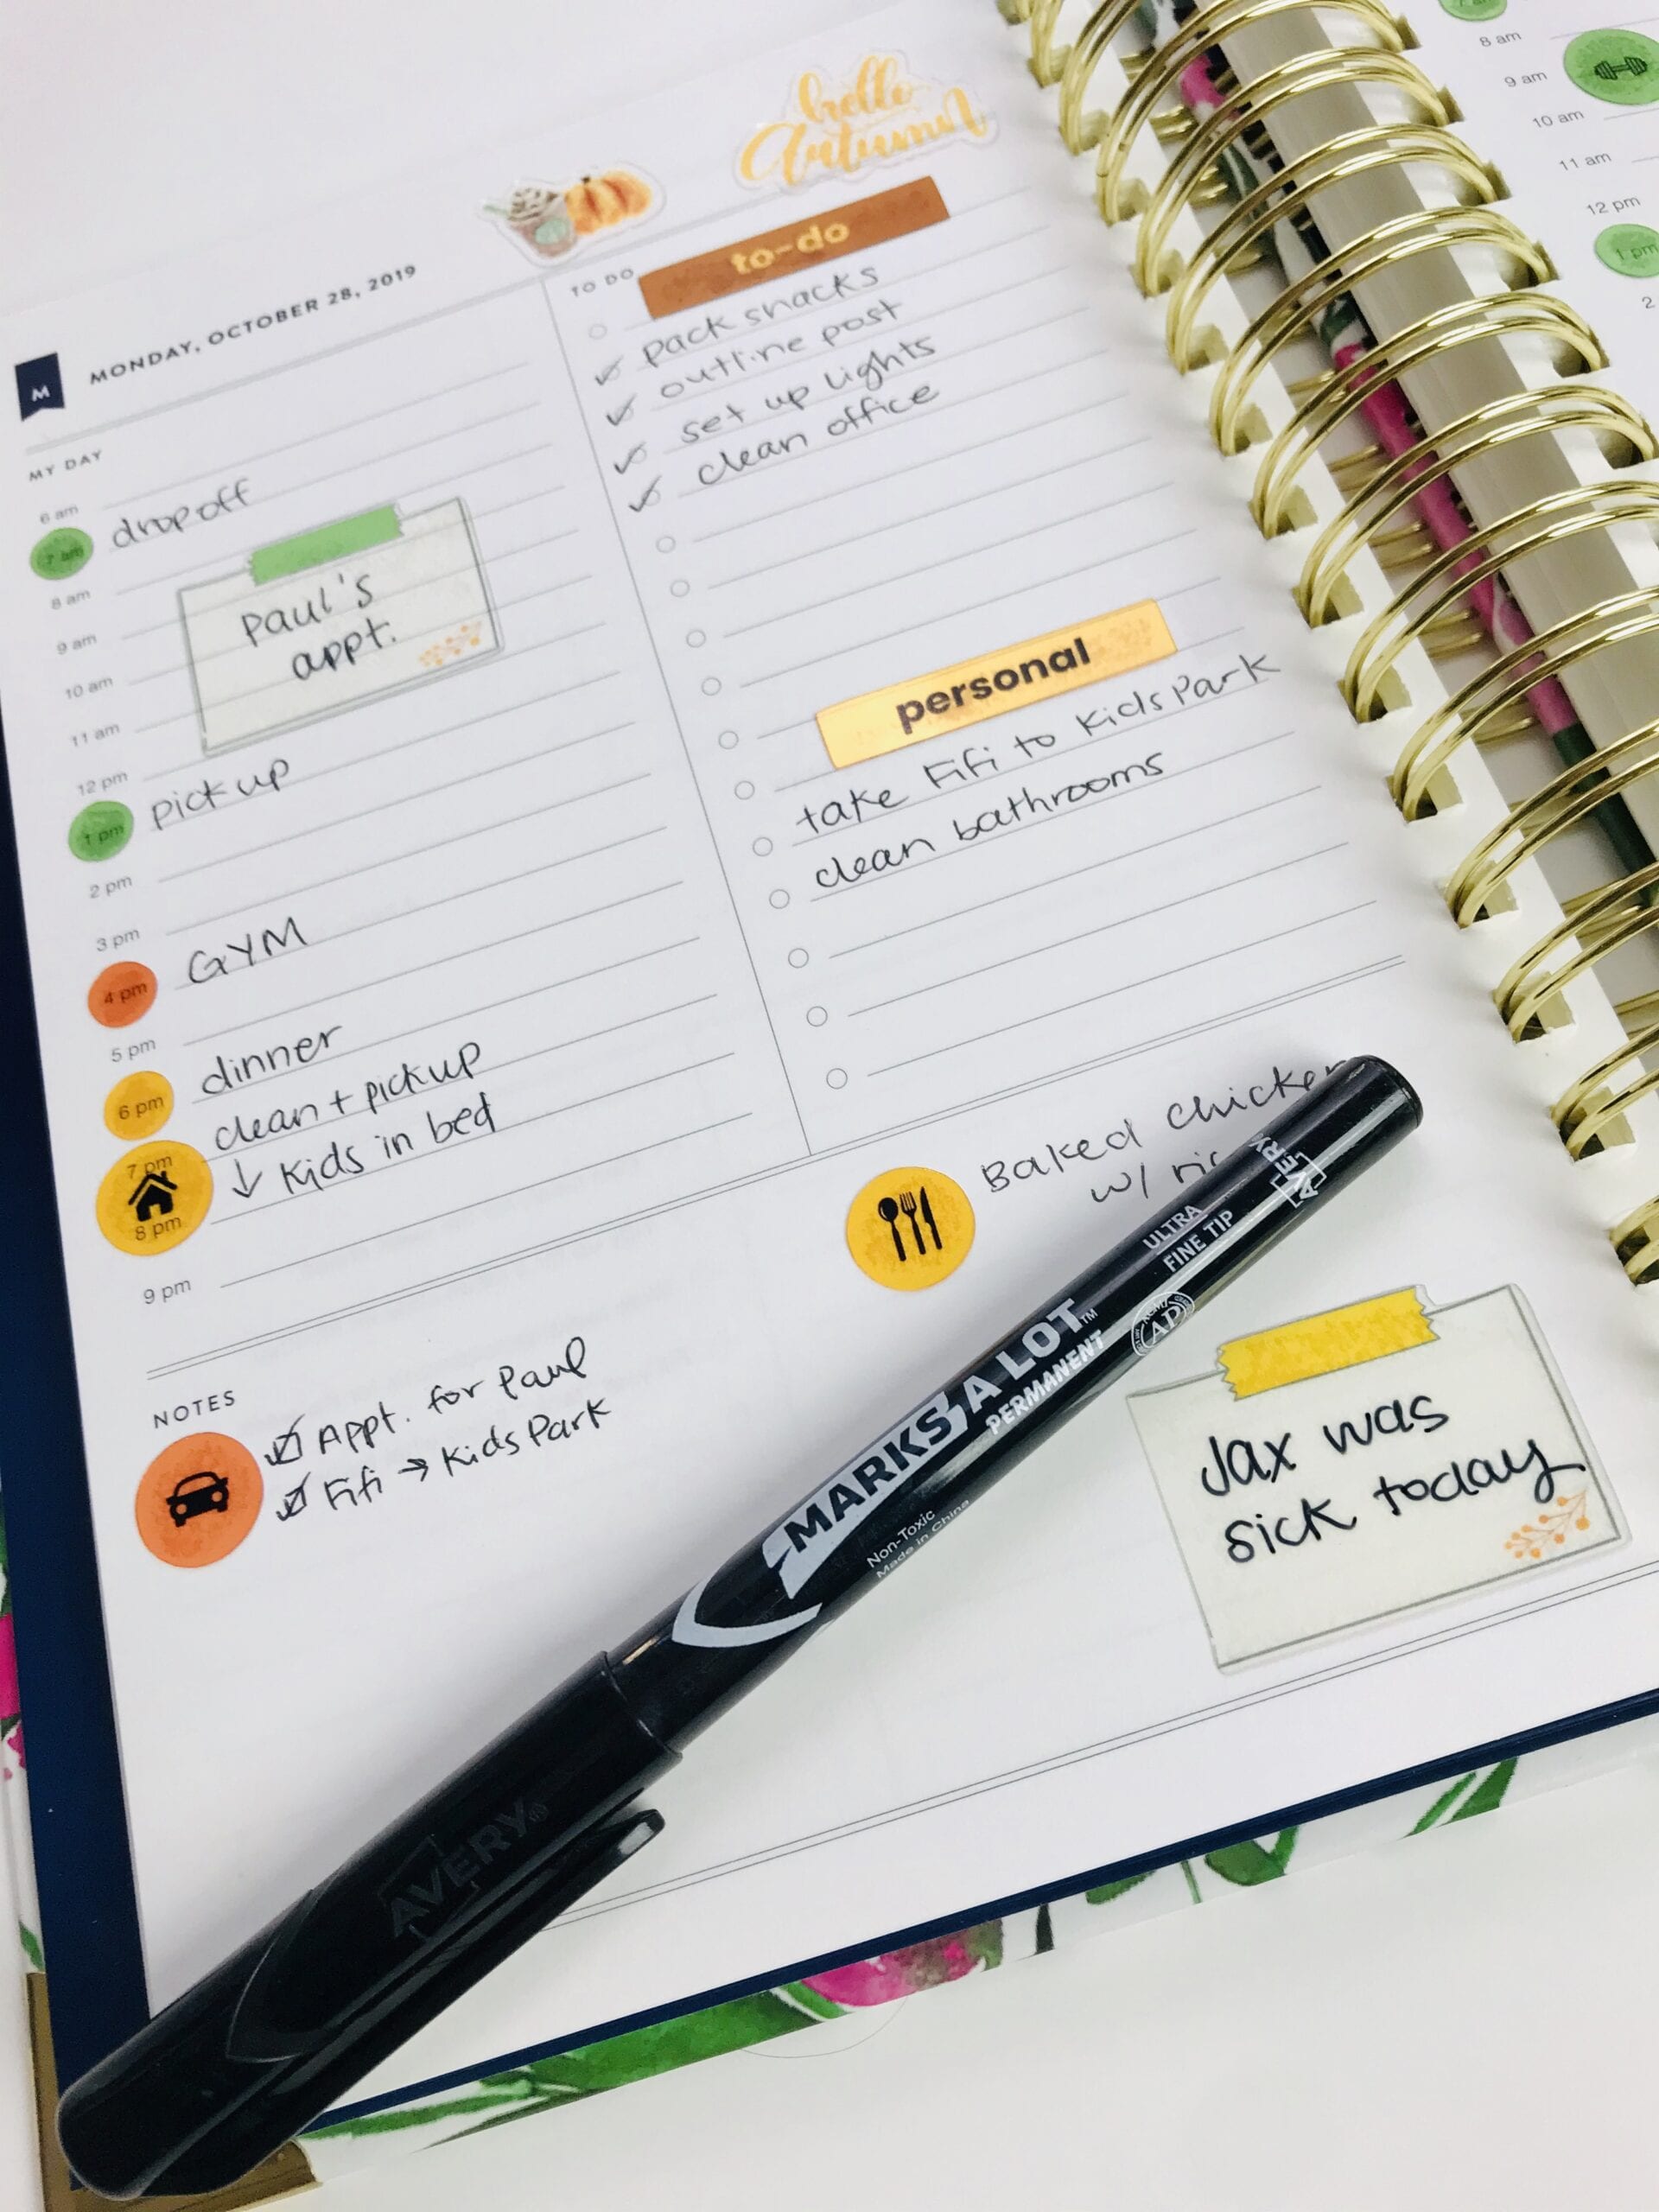 hello
Autumn
MONDAY, OCTOBER 28, 2019
M
MY DAY
6 am
7 am dropoff
8 am
Paul's
appt.
9 am
10 am
11 am
12 pm
1 pm pick up
2 pm
3 pm
4 pm GYM
5 pm
6 pm dinner
clean + pickup
7 pm
↓ Kids in bed
8 pm
9 pm
TO DO
to-do
pack snacks
outline post
set up lights
clean office
personal
take Fifi to KidsPark
clean bathrooms
Baked Chicken
w/
NOTES
Appt. for Paul
Fifi → KidsPark
Jax was
sick today
AVERY
ULTRA
FINE TIP
MARKS A LOT™
PERMANENT
AP
Non-Toxic
Made in China
AVERY®
8 am
9 am
10 am
11 am
12 pm
1 pm
2